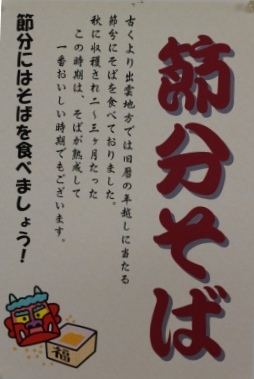 節分そば
古くより出雲地方では旧暦の年越しに当たる
節分にそばを食べておりました。
秋に収穫され二～三ヶ月たった
この時期は、そばが熟成して
一番おいしい時期でもございます。
節分にはそばを食べましょう！
福